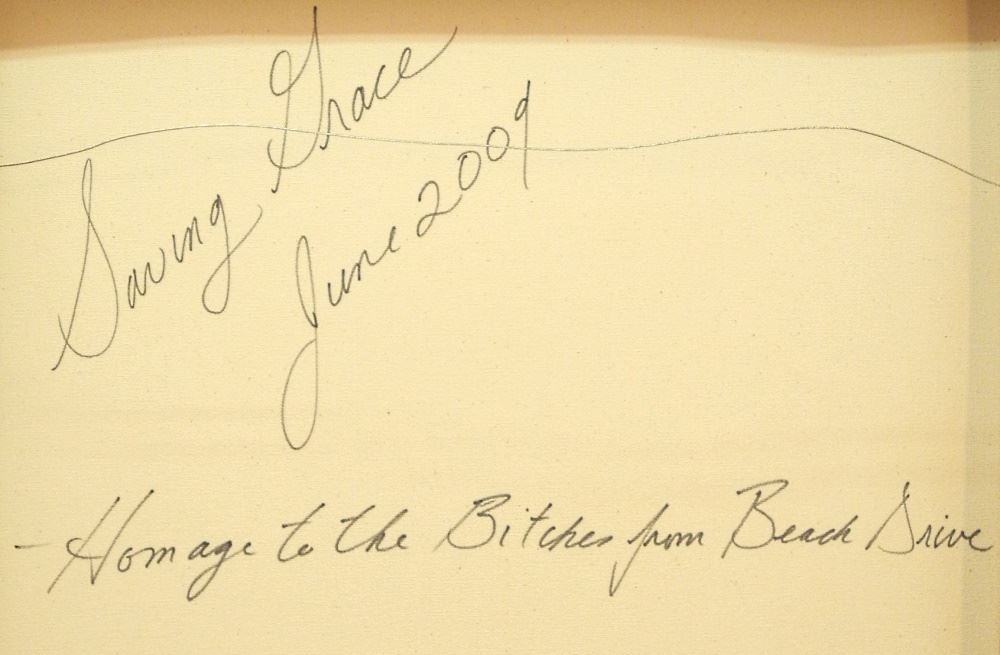 Saving Grace
June 2009
- Homage to the Bitches from Beach Drive